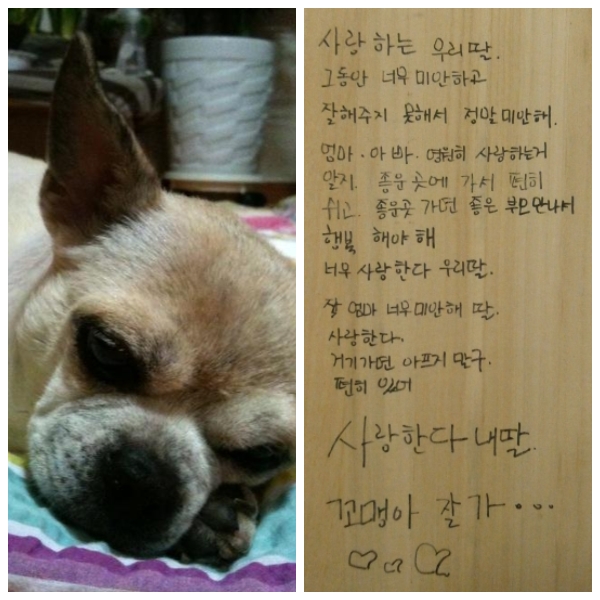 사랑 하는 우리딸.
그동안 너무 미안하고
잘해주지 못해서 정말 미안해.
엄마 · 아빠 · 영원히 사랑하는거
알지. 좋은 곳에 가서 편히
쉬고. 좋은곳 가면 좋은 부모 만나서
행복 해야 해
너무 사랑한다 우리딸.
엄마 너무 미안해 딸.
사랑한다.
거기가면 아프지 말구.
편히 있어
사랑한다 내딸.
꼬맹아 잘가...